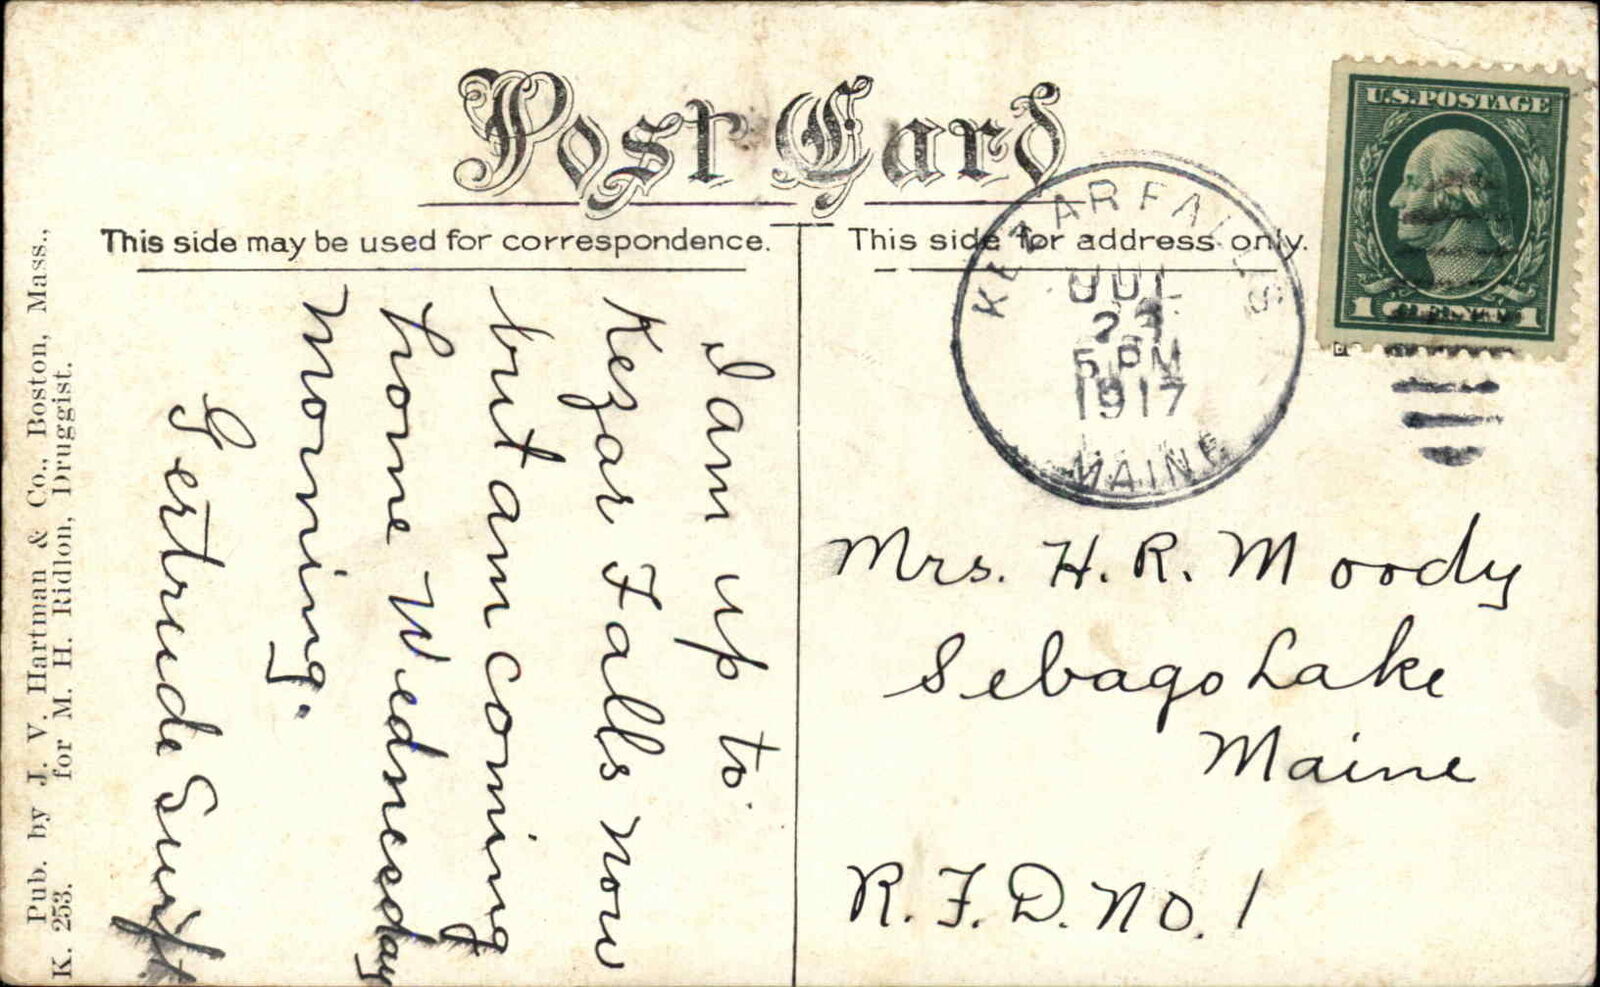 Post Card
This side may be used for correspondence.
This side for address only.
I am up to
Kezar Falls now
but am coming
home Wednesday
morning.
Gertrude Swift
Pub. by J. V. Hartman & Co., Boston, Mass.,
K. 253. for M. H. Ridlon, Druggist.
U.S.POSTAGE
1 1
KEZAR FALLS
JUL
5 PM
1917
MAINE
Mrs. H. R. Moody
Sebago Lake
Maine
R. F. D. No. 1